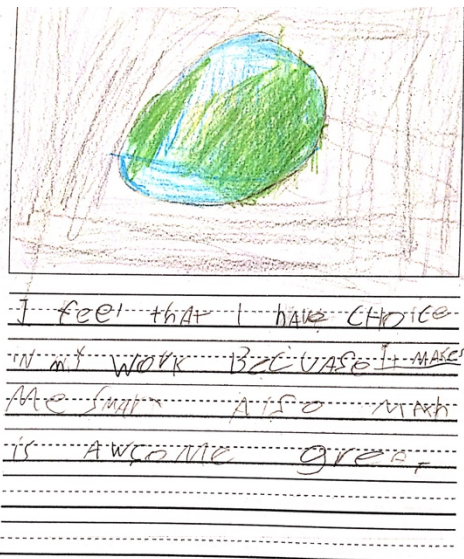 I feel that I have CHOICE
iN mY WORK BECUASE It MAKES
Me SMART AlSO MAth
is AWSOMe